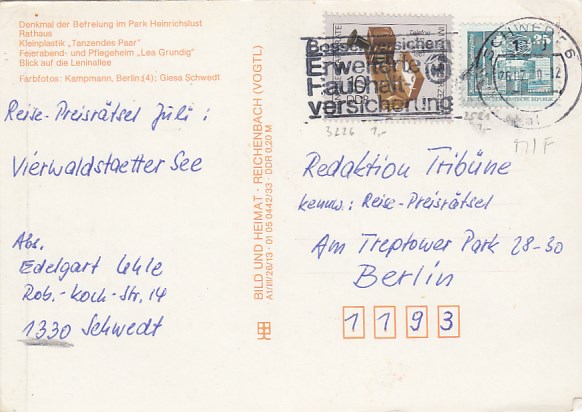 Denkmal der Befreiung im Park Heinrichslust
Rathaus
Kleinplastik „Tanzendes Paar"
Feierabend- und Pflegeheim „Lea Grundig"
Blick auf die Leninallee
Farbfotos: Kampmann, Berlin (4); Giesa Schwedt
Reise-Preisrätsel Juli:
Vierwaldstaetter See
Abs.
Edelgart Uhle
Rob.-Koch-Str. 14
1330 Schwedt
BILD UND HEIMAT · REICHENBACH (VOGTL)
A1/III/26/13 · 01 05 0442/33 · DDR 0,20 M
Besser versichern
Erweiterte
Haushalt-
versicherung
10
DDR
35
SCHWEDT
3226 1,-
2521
1,-
Redaktion Tribüne
Kennw.: Reise-Preisrätsel
Am Treptower Park 28-30
Berlin
1193